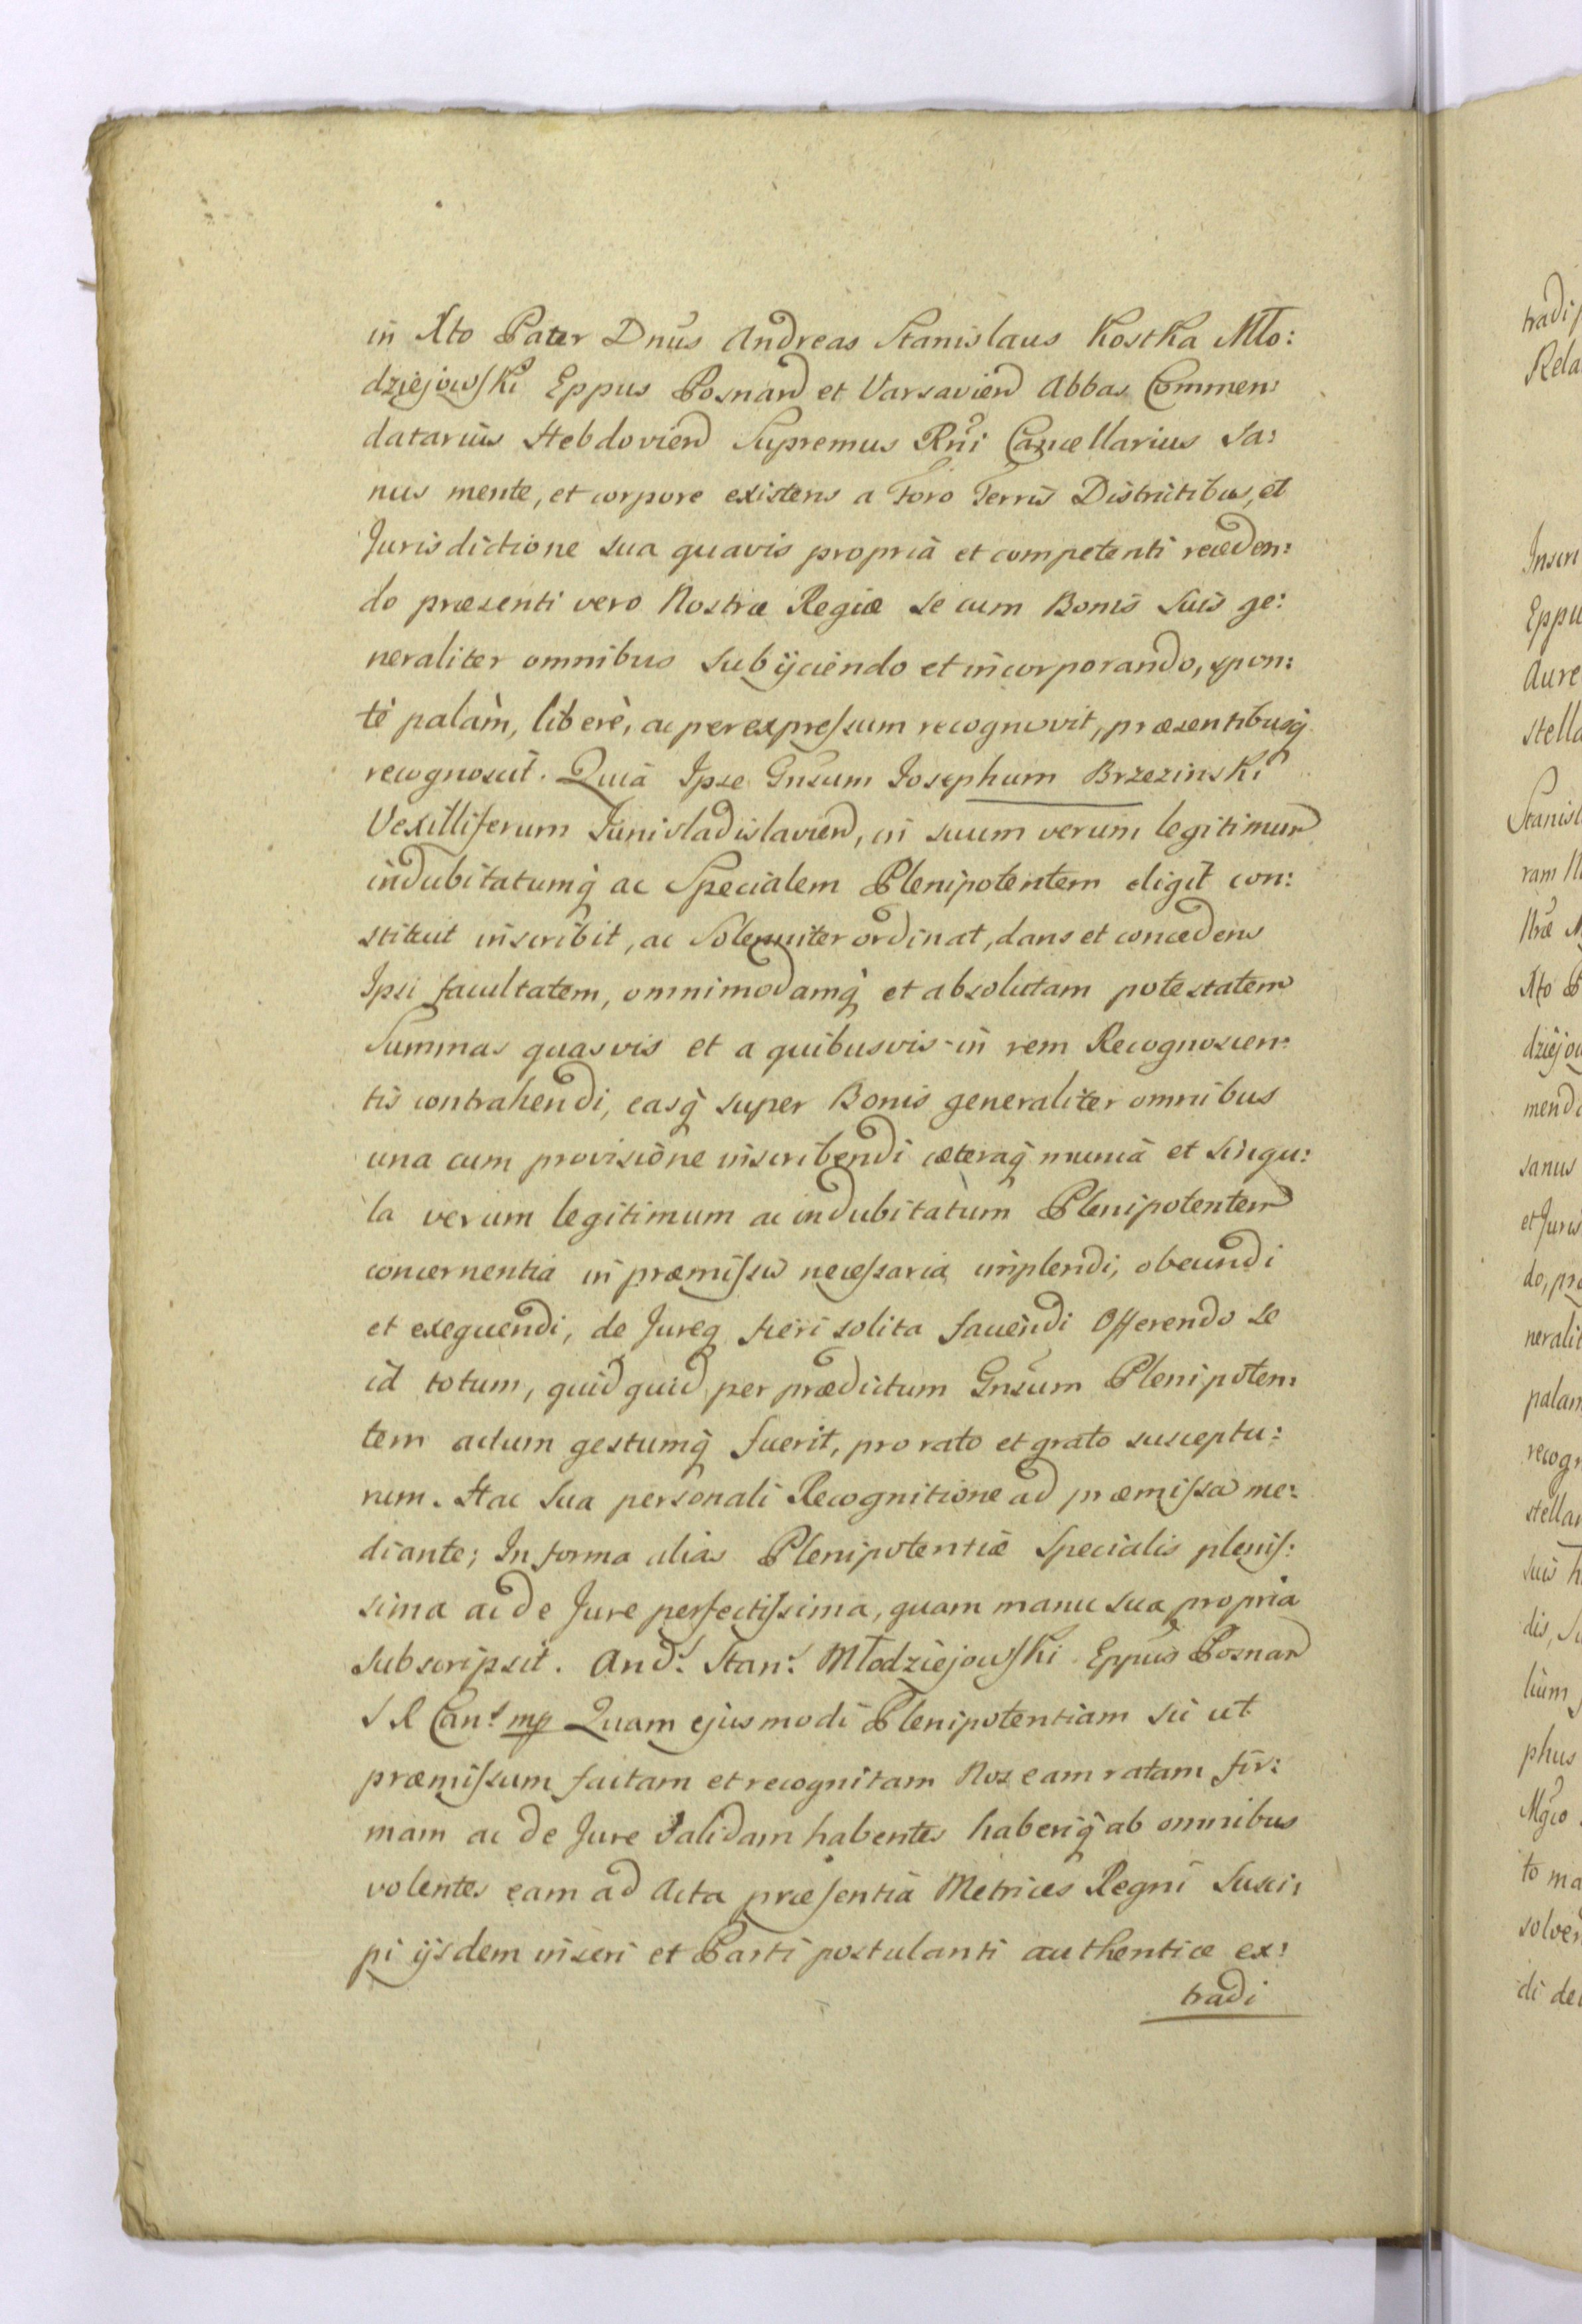 in Xto Pater Dnus Andreas Stanislaus Kostka Mło:
dziejowski Eppus Posnan et Varsavien Abbas Commen:
datarius Hebdovien Supremus Rni Cancellarius Sa:
nus mente, et corpore existens a Foro Terris Districtibus, et
Jurisdictione sua quavis propria et competenti receden:
do præsenti vero Nostræ Regiæ se cum Bonis suis ge:
neraliter omnibus subijciendo et incorporando, spon:
tè palàm, liberè, ac per expressum recognovit, præsentibusq
recognoscit. Quia Ipse Gnsum Josephum Brzezinski
Vexilliferum Junivladislavien, in suum verum legitimum
indubitatumq ac Specialem Plenipotentem eligit con:
stituit inscribit, ac Solenniter ordinat, dans et concedens
Ipsi facultatem, omnimodamq et absolutam potestatem
Summas quasvis et a quibusvis in rem Recognoscen:
tis contrahendi, easq super Bonis generaliter omnibus
una cum provisione inscribendi cæteraq munia et singu:
la verum legitimum ac indubitatum Plenipotentem
concernentia in præmissis necessaria implendi, obeundi
et exequendi, de Jureq fieri solita faciendi Offerendo se
id totum, quidquid per prædictum Gnsum Plenipoten:
tem actum gestumq fuerit, pro rato et grato susceptu:
rum. Hac sua personali Recognitione ad præmissa me:
diante; In forma alias Plenipotentiæ Specialis plenis:
sima ac de Jure perfectissima, quam manu sua propria
subscripsit. And: Stan: Młodziejowski Eppus Posnan
S R Can: mp Quam ejusmodi Plenipotentiam sic ut
præmissum factam et recognitam Nos eam ratam fir:
mam ac de Jure validam habentes haberiq ab omnibus
volentes eam ad Acta præsentia Metrices Regni Susci:
pi ijsdem inseri et Parti postulanti authentice ex:
tradi
tradi
Rela
Eppu
Aure
stella
Stanisl
ram
Xto
dziejow
menda
sanus
et Juris
do, præ
neralit
palam
recogn
stellan
suis
dis,
lium
phus
to ma
solven
di de